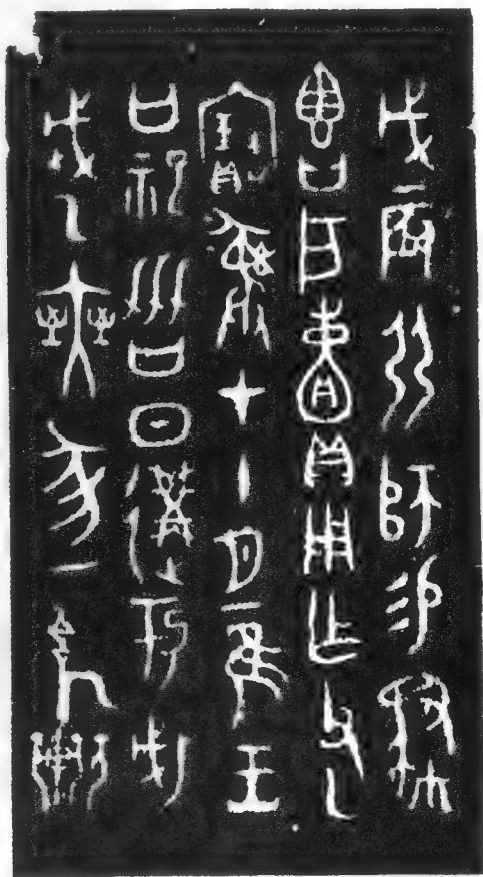 戊辰弜師易𦘔
戶貝用乍父乙
寶彝才十月一隹王
廿祀劦日遘于匕戊
武乙奭豕一